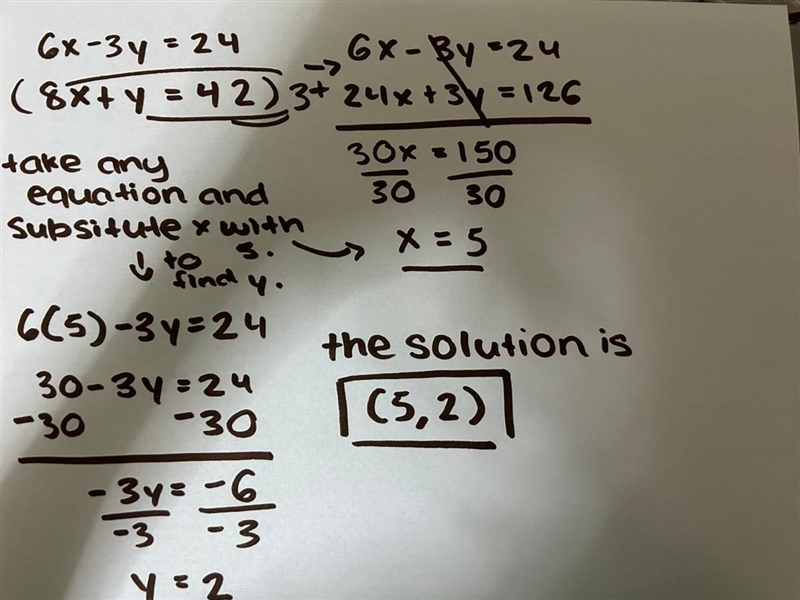 6x-3y=24
(8x+y=42)3+
take any
equation and
subsitute x with
5.
↓ to
find y.
6(5)-3y=24
30-3y=24
-30 -30
-3y=-6
-3 -3
y=2
→ 6x-3y=24
24x+3y=126
30x=150
30 30
→ x=5
the solution is
(5,2)